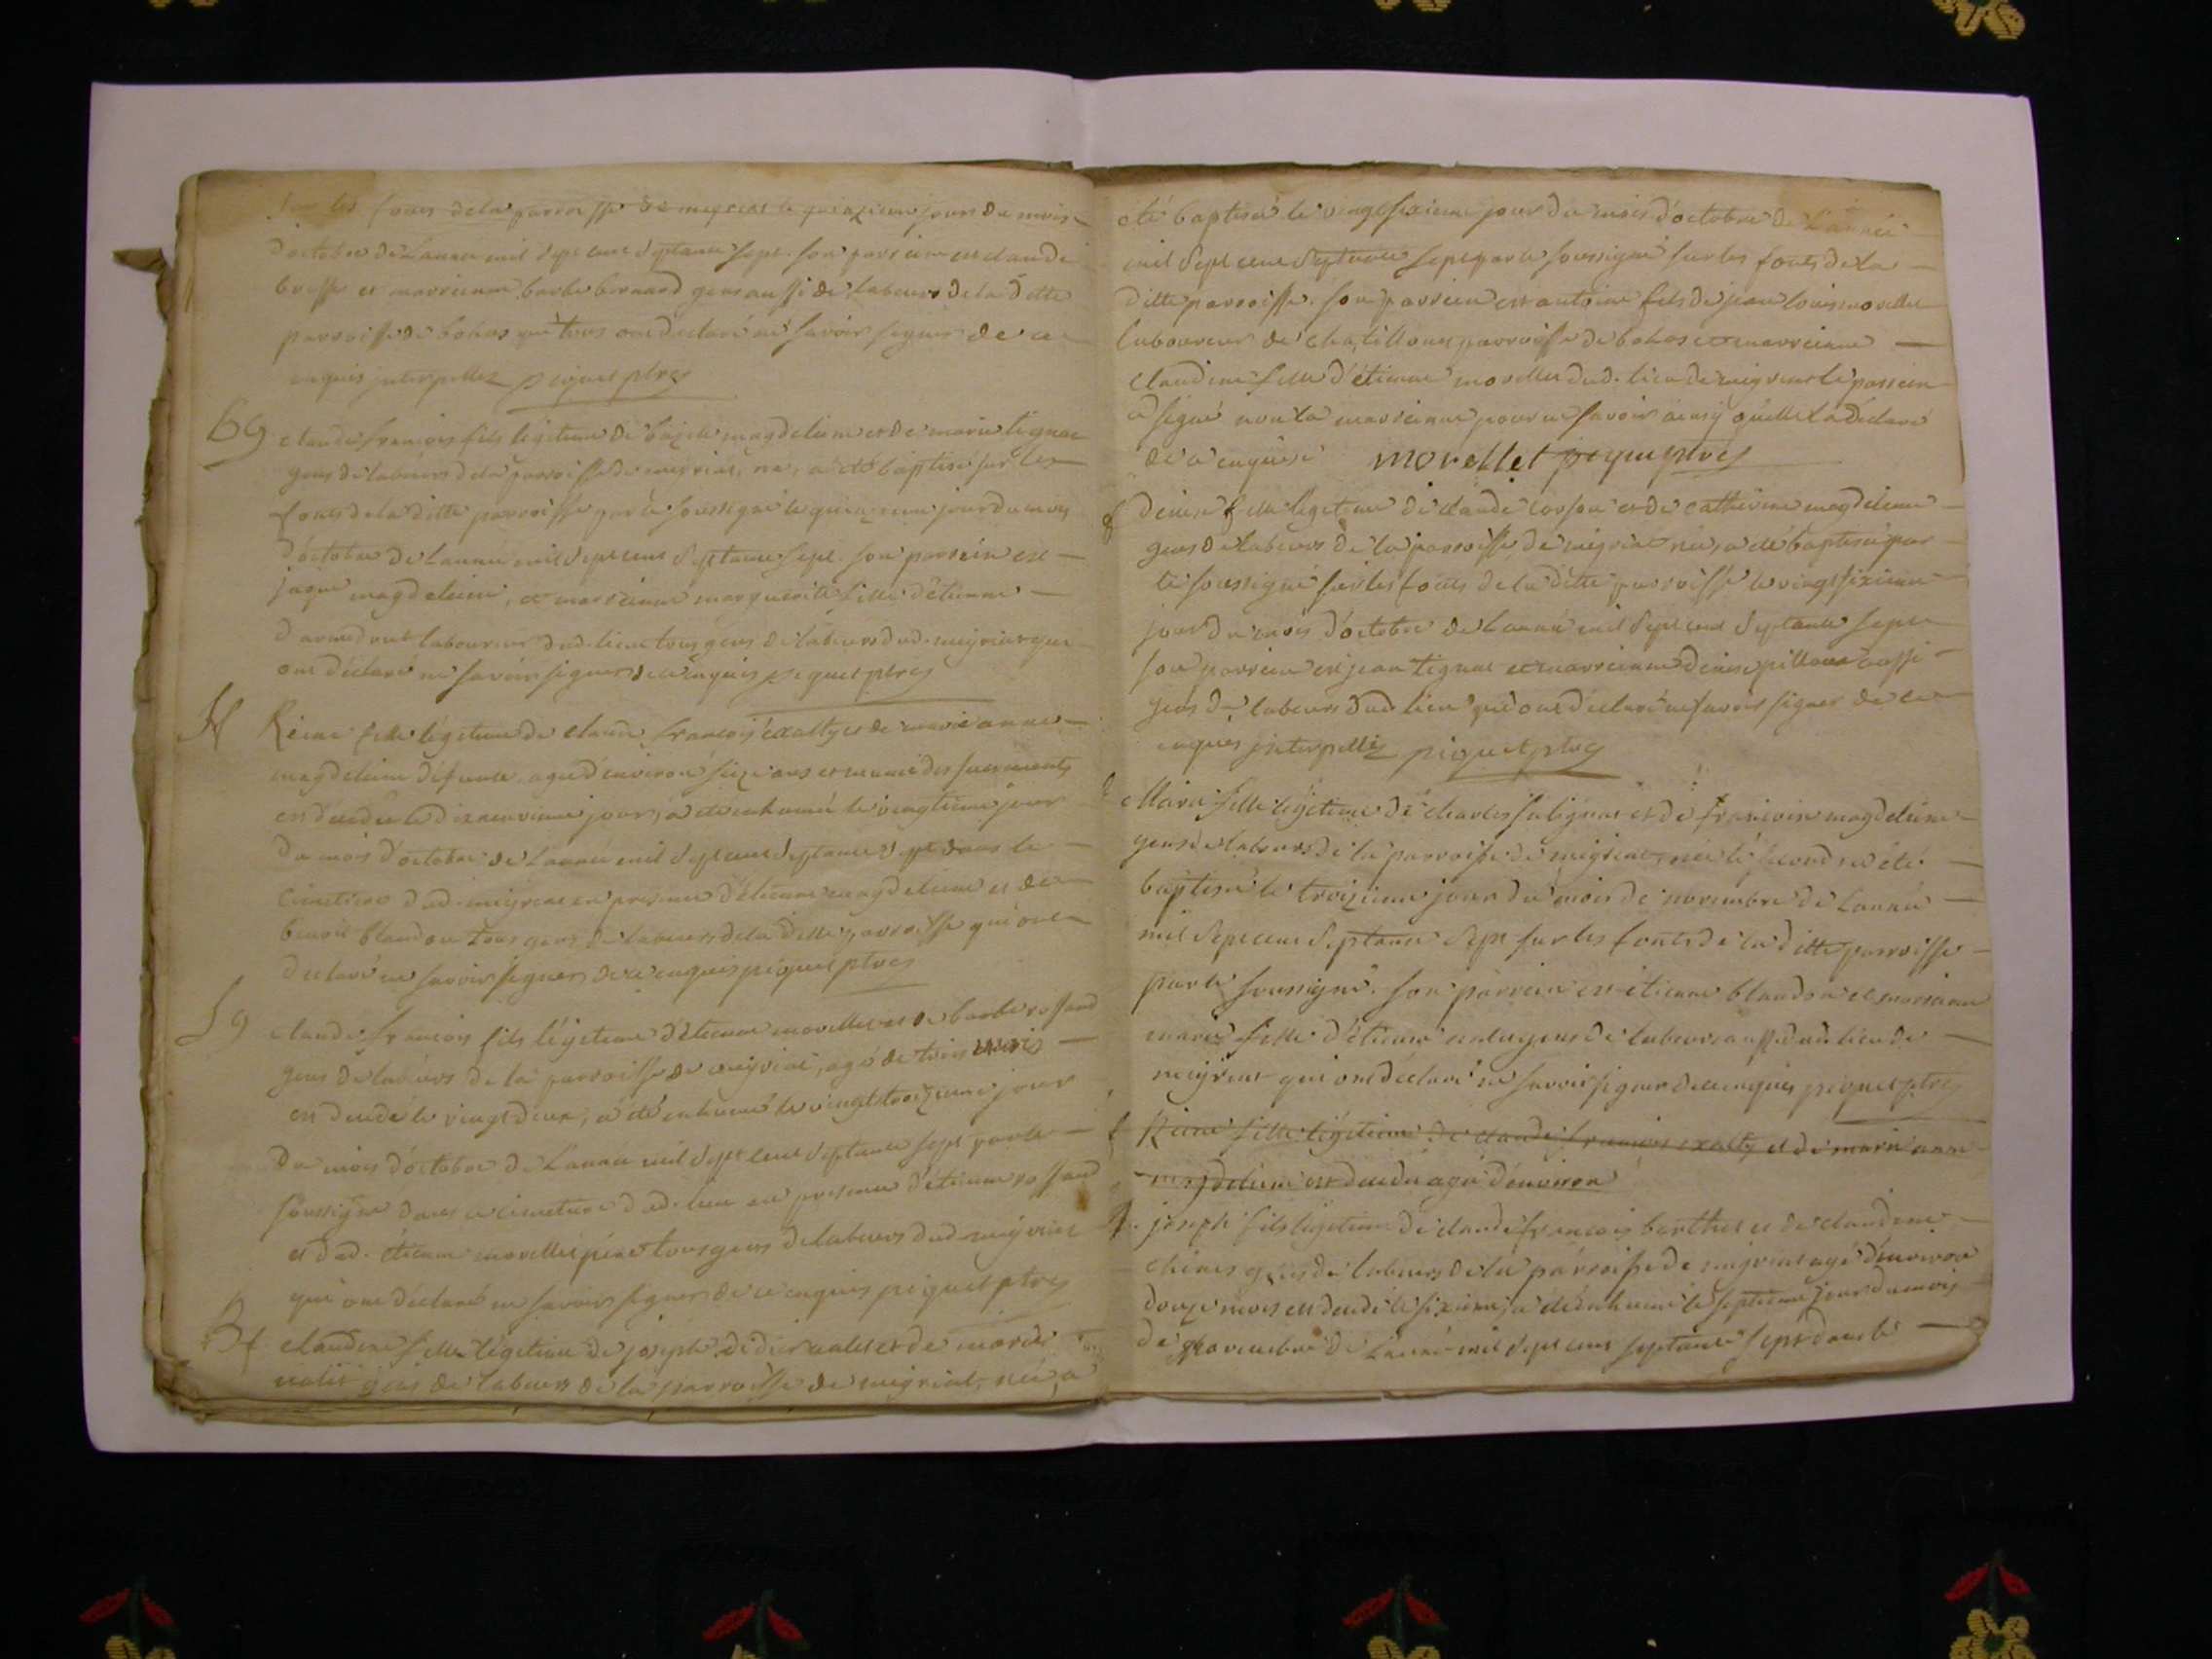 les fonts dela parroisse de meyriat le quinzieme jours du mois
doctobre de Lannee mil sept cent septante sept. son parrein est claude
brosse et marreinne barbe bernard gens aussi de labeurs dela ditte
parroisse de bohas qui tous ont declaré ne savoir signer de ce
enquis interpellez piquet ptre
bg claude françois fils légitime de magdelaine et de marie tignat
gens de labeurs dela parroisse de meyriat, né, a été baptisé sur les
fonts dela ditte parroisse par le soussigné le quinzieme jour du mois
d'octobre de Lannee mil sept cent septante sept. son parrein est
jaque magdelaine, et marreinne marguerite fille d'étienne
laboureur dud. lieu tous gens de labeurs dud. meyriat qui
ont déclaré ne savoir signer de ce enquis piquet ptre
Reine fille légitime de claude françois exalty et de marie anne
magdelaine défunte agée d'environ seize ans et munie des sacrements
est décédée le dixneuvieme jour, a été enhumée le vingtieme jour
du mois d'octobre de Lannée mil sept cent septante sept dans le
cimetiere dud. meyriat en presence d'étienne magdelaine et de
benoit blandon tous gens de labeurs dela ditte parroisse qui ont
declaré ne savoir signer de ce enquis piquet ptre
Sg claude françois fils légitime d'étienne morellet et de barbe rossand
gens de labeurs de la parroisse de meyriat, agé de trois mois
est décédé le vingt deux, a été enhumé le vingt troizieme jour
du mois d'octobre de Lannée mil sept cent septante sept par le
soussigné dans le cimetiere dud. lieu en presence d'étienne rossand
et dud. étienne morellet pere tous gens de labeurs dud. meyriat
qui ont déclaré ne savoir signer de ce enquis piquet ptre
Bf claudine fille légitime de joseph didier et de marie
gens de labeurs de la parroisse de meyriat, née, a
été baptisée le vingt sixieme jour du mois d'octobre de Lannée
mil sept cent septante sept par le soussigné sur les fonts de la
ditte parroisse. son parrein est antoine fils de jean louis morellet
laboureur de chatillonet parroisse de bohas et marreinne
claudine fille d'étienne morellet dud. lieu de meyriat le parrein
a signé non la marreinne pour ne savoir ainsy qu'elle la déclaré
de ce enquise morellet piquet ptre
Denise fille légitime de claude corson et de catherine magdelaine
gens de labeurs de la parroisse de meyriat née, a été baptisée par
le soussigné sur les fonts de la ditte parroisse le vingt sixieme
jour du mois d'octobre de Lannée mil sept cent septante sept
son parrein est jean tignat et marreinne denise pillon aussi
gens de labeurs dud. lieu qui ont declaré ne savoir signer de ce
enquis interpellés piquet ptre
Marie fille légitime de charles salignat et de françoise magdelaine
gens de labeurs de la parroisse de meyriat, née le second, a été
baptisée le troizieme jour du mois de novembre de Lannée
mil sept cent septante sept sur les fonts de la ditte parroisse
par le soussigné. son parrein est étienne blandon et marreinne
marie fille d'étienne gens de labeurs aussi dud. lieu de
meyriat qui ont déclaré ne savoir signer de ce enquis piquet ptre
Reine fille légitime de claude françois exalty et de marie anne
magdelaine est decedée agée d'environ
joseph fils légitime de claude françois barthet et de claudine
chênes gens de labeurs de la parroisse de meyriat agé d'environ
douze mois est decedé le sixieme, a été enhumé le septieme jour du mois
de novembre de Lannée mil sept cent septante sept dans le